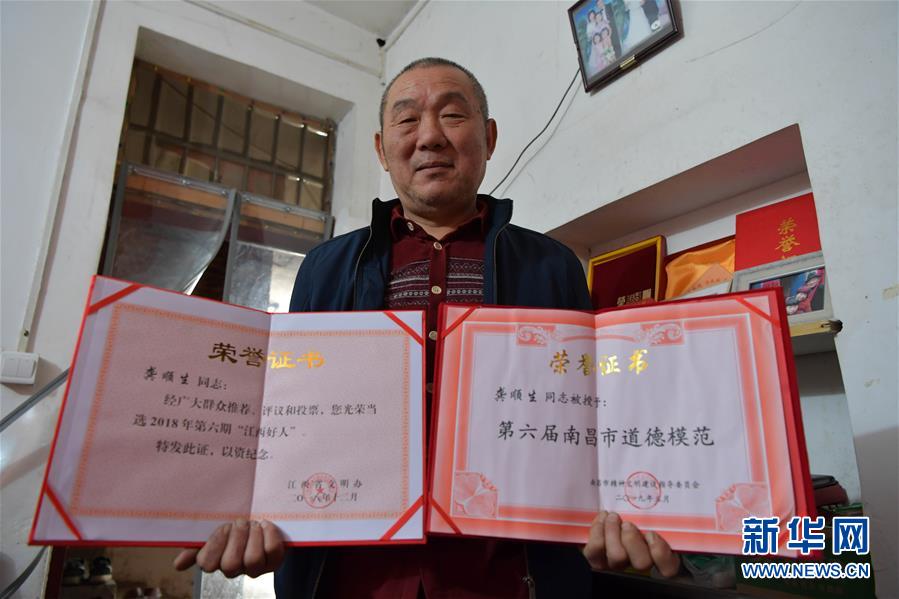 荣誉证书
龚顺生 同志:
经广大群众推荐、评议和投票，您光荣当
选 2018 年第六期“江西好人”。
特发此证，以资纪念。
江西省文明办
二〇一八年十二月
荣誉证书
龚顺生 同志被授予:
第六届南昌市道德模范
南昌市精神文明建设指导委员会
二〇一九年
荣誉
新华网
WWW.NEWS.CN